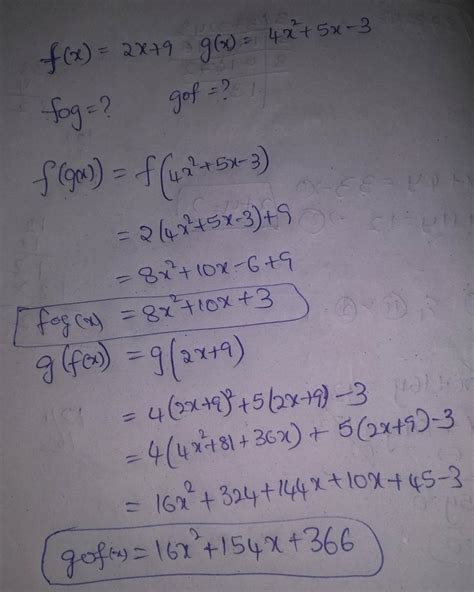 f(x) = 2x+9   g(x) = 4x²+5x-3
fog = ?   gof = ?
f(g(x)) = f(4x²+5x-3)
= 2(4x²+5x-3)+9
= 8x²+10x-6+9
fog(x) = 8x²+10x+3
g(f(x)) = g(2x+9)
= 4(2x+9)²+5(2x+9)-3
= 4(4x²+81+36x) + 5(2x+9)-3
= 16x²+324+144x+10x+45-3
gof(x) = 16x²+154x+366